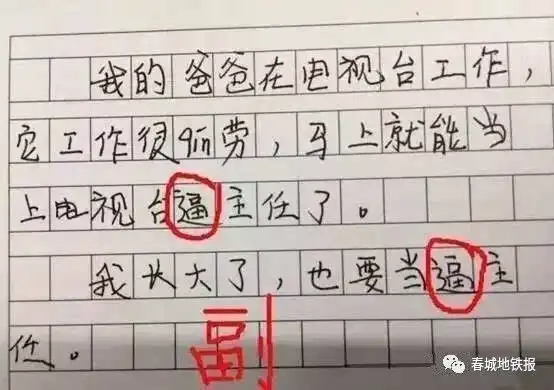 我的爸爸在电视台工作，
它工作很qin劳，马上就能当
上电视台逼主任了。
我长大了，也要当逼主
任。
副
春城地铁报